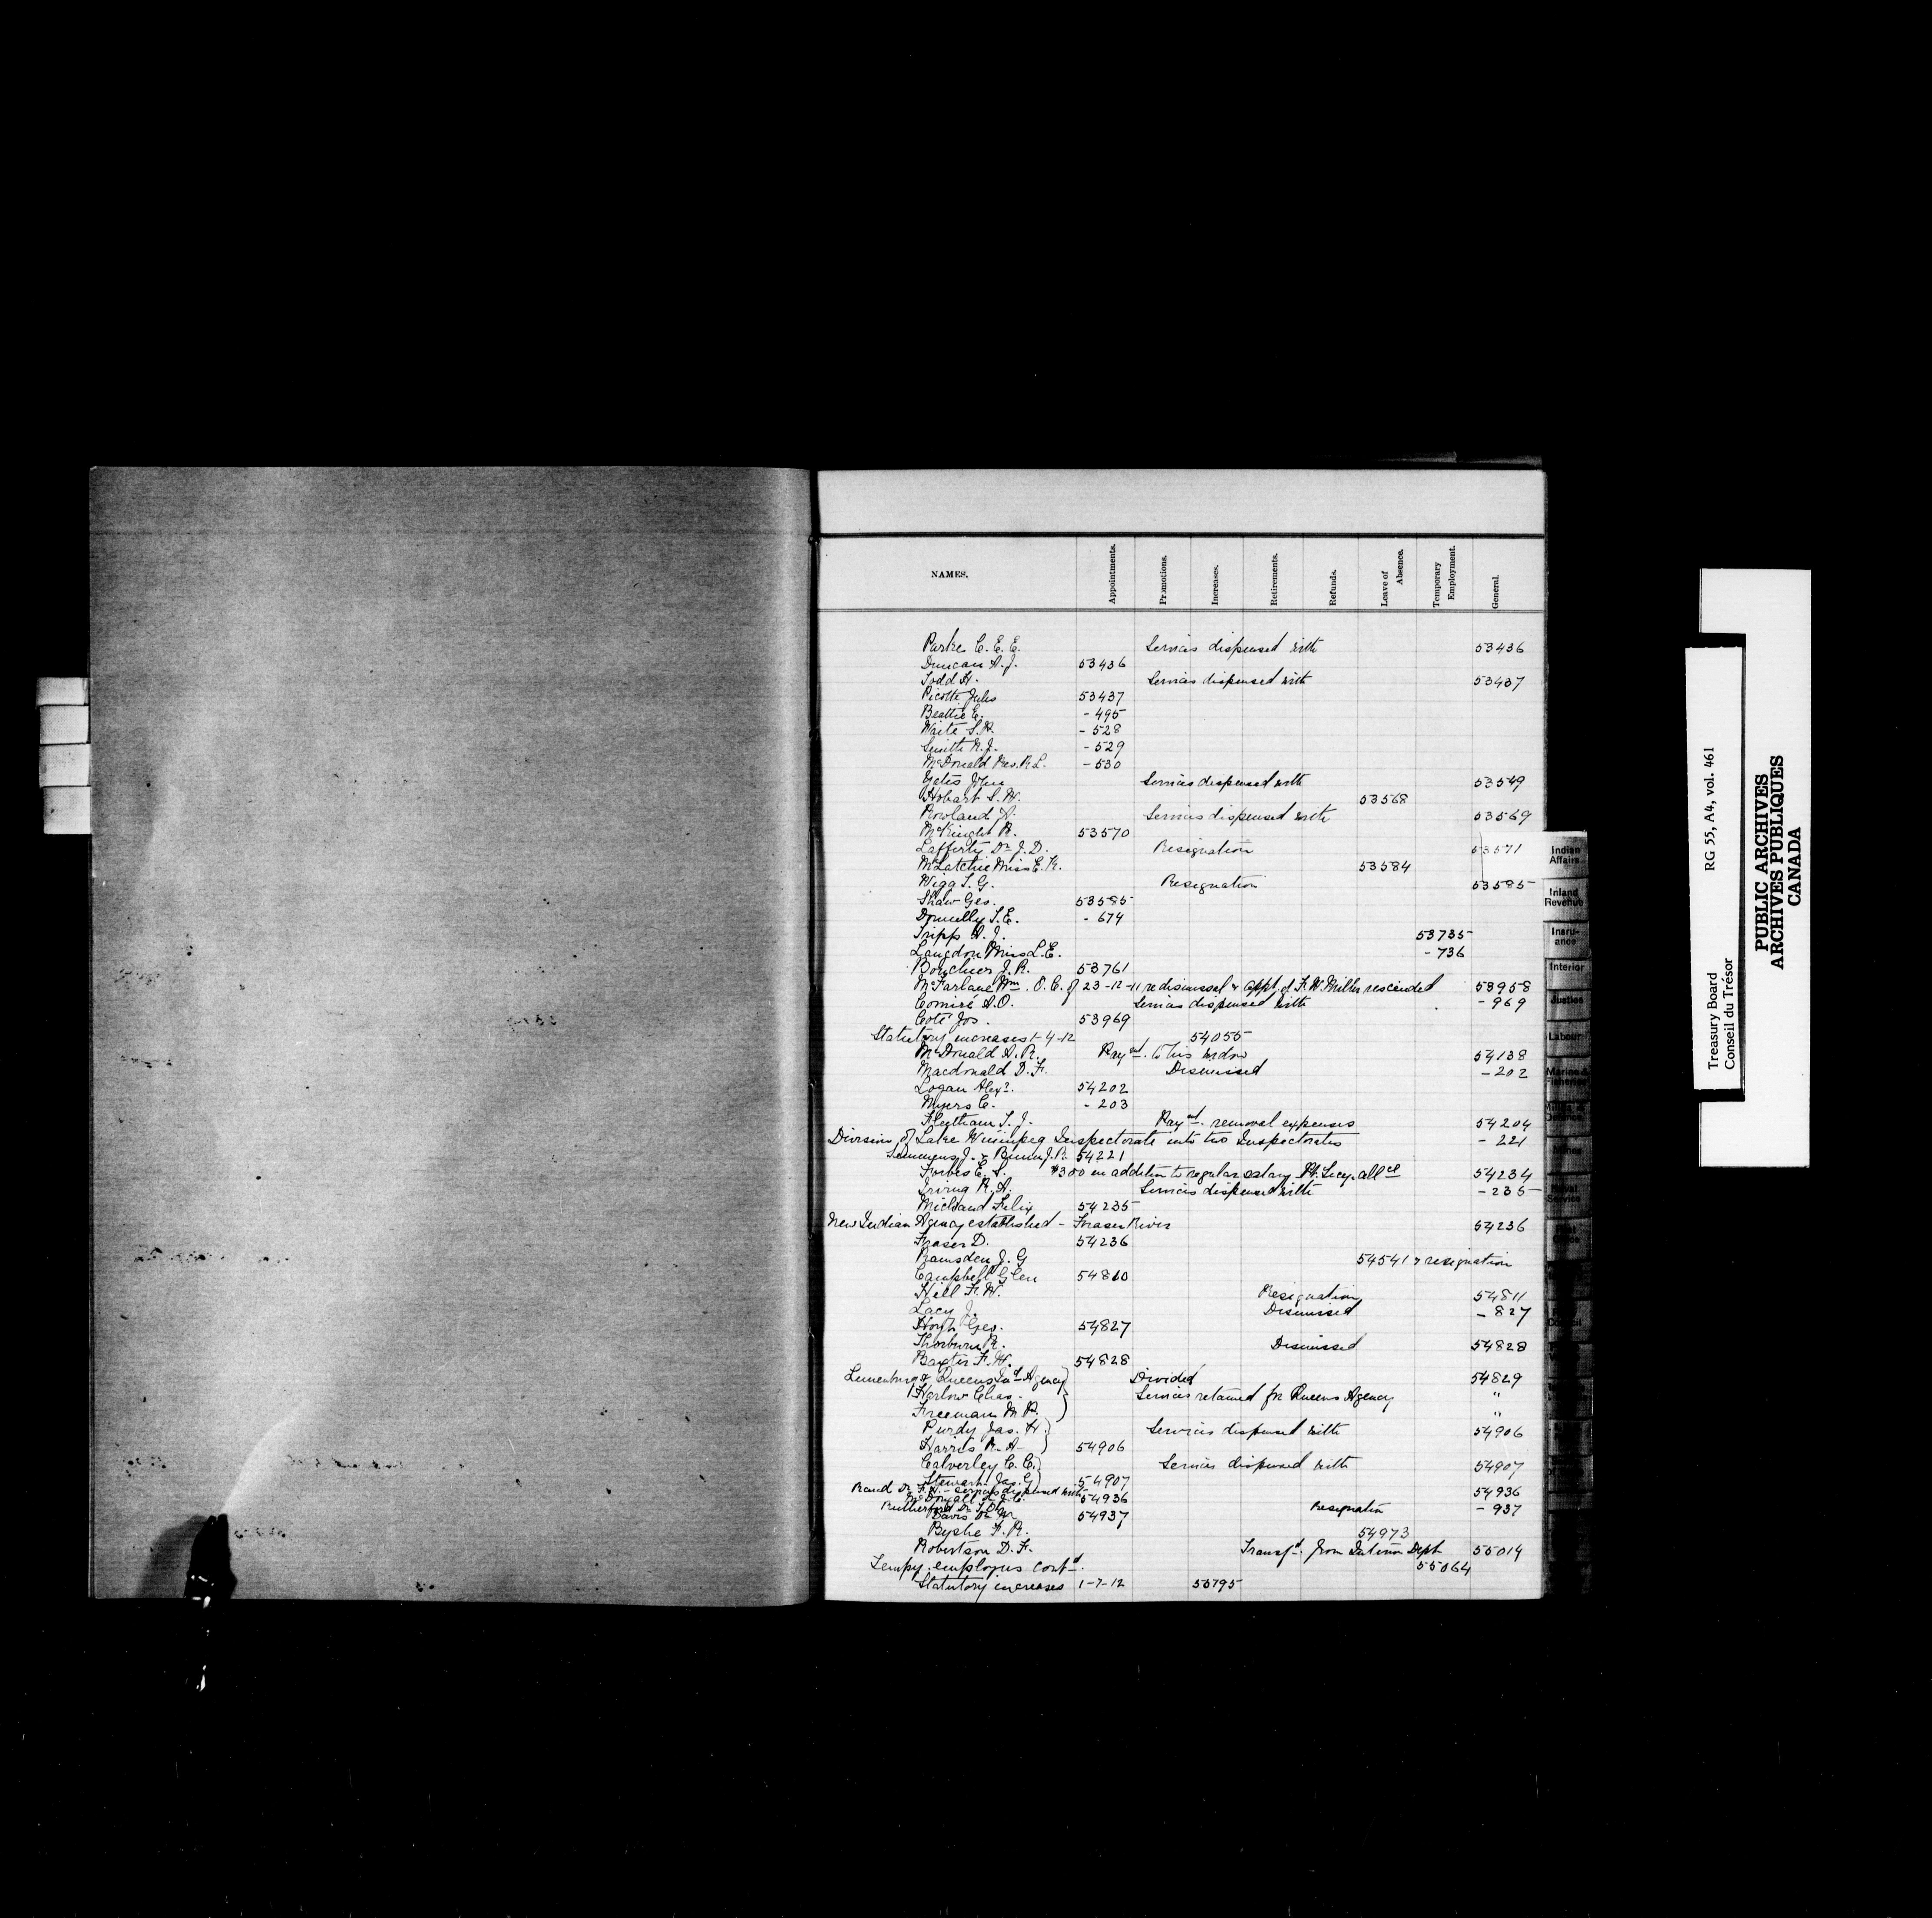 NAMES. Appointments. Promotions. Increases. Retirements. Refunds. Leave of Absence. Temporary Employment. General.
Parke C. E. E. Services dispensed with 53436
Duncan A. J. 53436
Todd H. Services dispensed with 53437
Picotte Jules 53437
Beattie E. - 495
Waite S. R. - 528
Smith N. J. - 529
McDonald R. L. - 530
Yates John Services dispensed with 53549
Hobart S. W. 53568
Rowland W. Services dispensed with 53569
McKnight R. 53570
Lafferty Dr J. D. Resignation 53571
McLatchie Miss E. R. 53584
Wigg T. G. Resignation 53585
Shaw Geo. 53585
Donnelly T. E. - 674
Tripp A. J. 53735
Langdon Miss L. E. - 736
Bouchier J. R. 53761
McFarlane Wm. O. C. of 23-12-11 re dismissal & appt. of F. W. Miller rescinded 53958
Comiré A. O. Services dispensed with - 969
Coté Jos. 53969
Statutory increases 1-4-12 54055
McDonald A. R. Paymt. to his widow 54138
Macdonald D. F. Dismissed - 202
Logan Alexr. 54202
Myers C. - 203
Fleetham T. J. Paymt. removal expenses 54204
Division of Lake Winnipeg Inspectorate into two Inspectorates - 221
Semmens J. & Bunn J. R. 54221
Forbes E. S. $300 in addition to regular salary Pt. Secy. allce 54234
Irving R. A. Services dispensed with - 235
Michaud Felix 54235
New Indian Agency established - Fraser River 54236
Fraser D. 54236
Ramsden J. G 54541 & resignation
Campbell Glen 54810
Hill F. W. Resignation 54811
Lacy J. Dismissed - 827
Hoyt Geo. 54827
Thorburn R. Dismissed 54828
Baxter F. W. 54828
Lunenburg & Queens Ind Agency) Divided 54829
Harlow Chas. Services retained for Queens Agency "
Freeman M. P. ) "
Purdy Jas. H. ) Services dispensed with 54906
Harris R. A ) 54906
Calverley C. C. ) Services dispensed with 54907
Stewart Jas. G ) 54907
Rand Dr F. A. - services dispensed with 54936
McDougall A. J. C. 54936
Rutherford Dr T. O. Resignation - 937
Davis Dr Wm 54937
Byshe F. R. 54973
Robertson D. F. Transfd. from Interior Dept 55014
Tempy. employees contd. 55064
Statutory increases 1-7-12 55795
Indian Affairs
Inland Revenue
Insurance
Interior
Justice
Labour
Marine & Fisheries
Militia & Defence
Mines
Naval Service
Post Office
Treasury Board RG 55, A4, vol. 461
Conseil du Trésor
PUBLIC ARCHIVES
ARCHIVES PUBLIQUES
CANADA